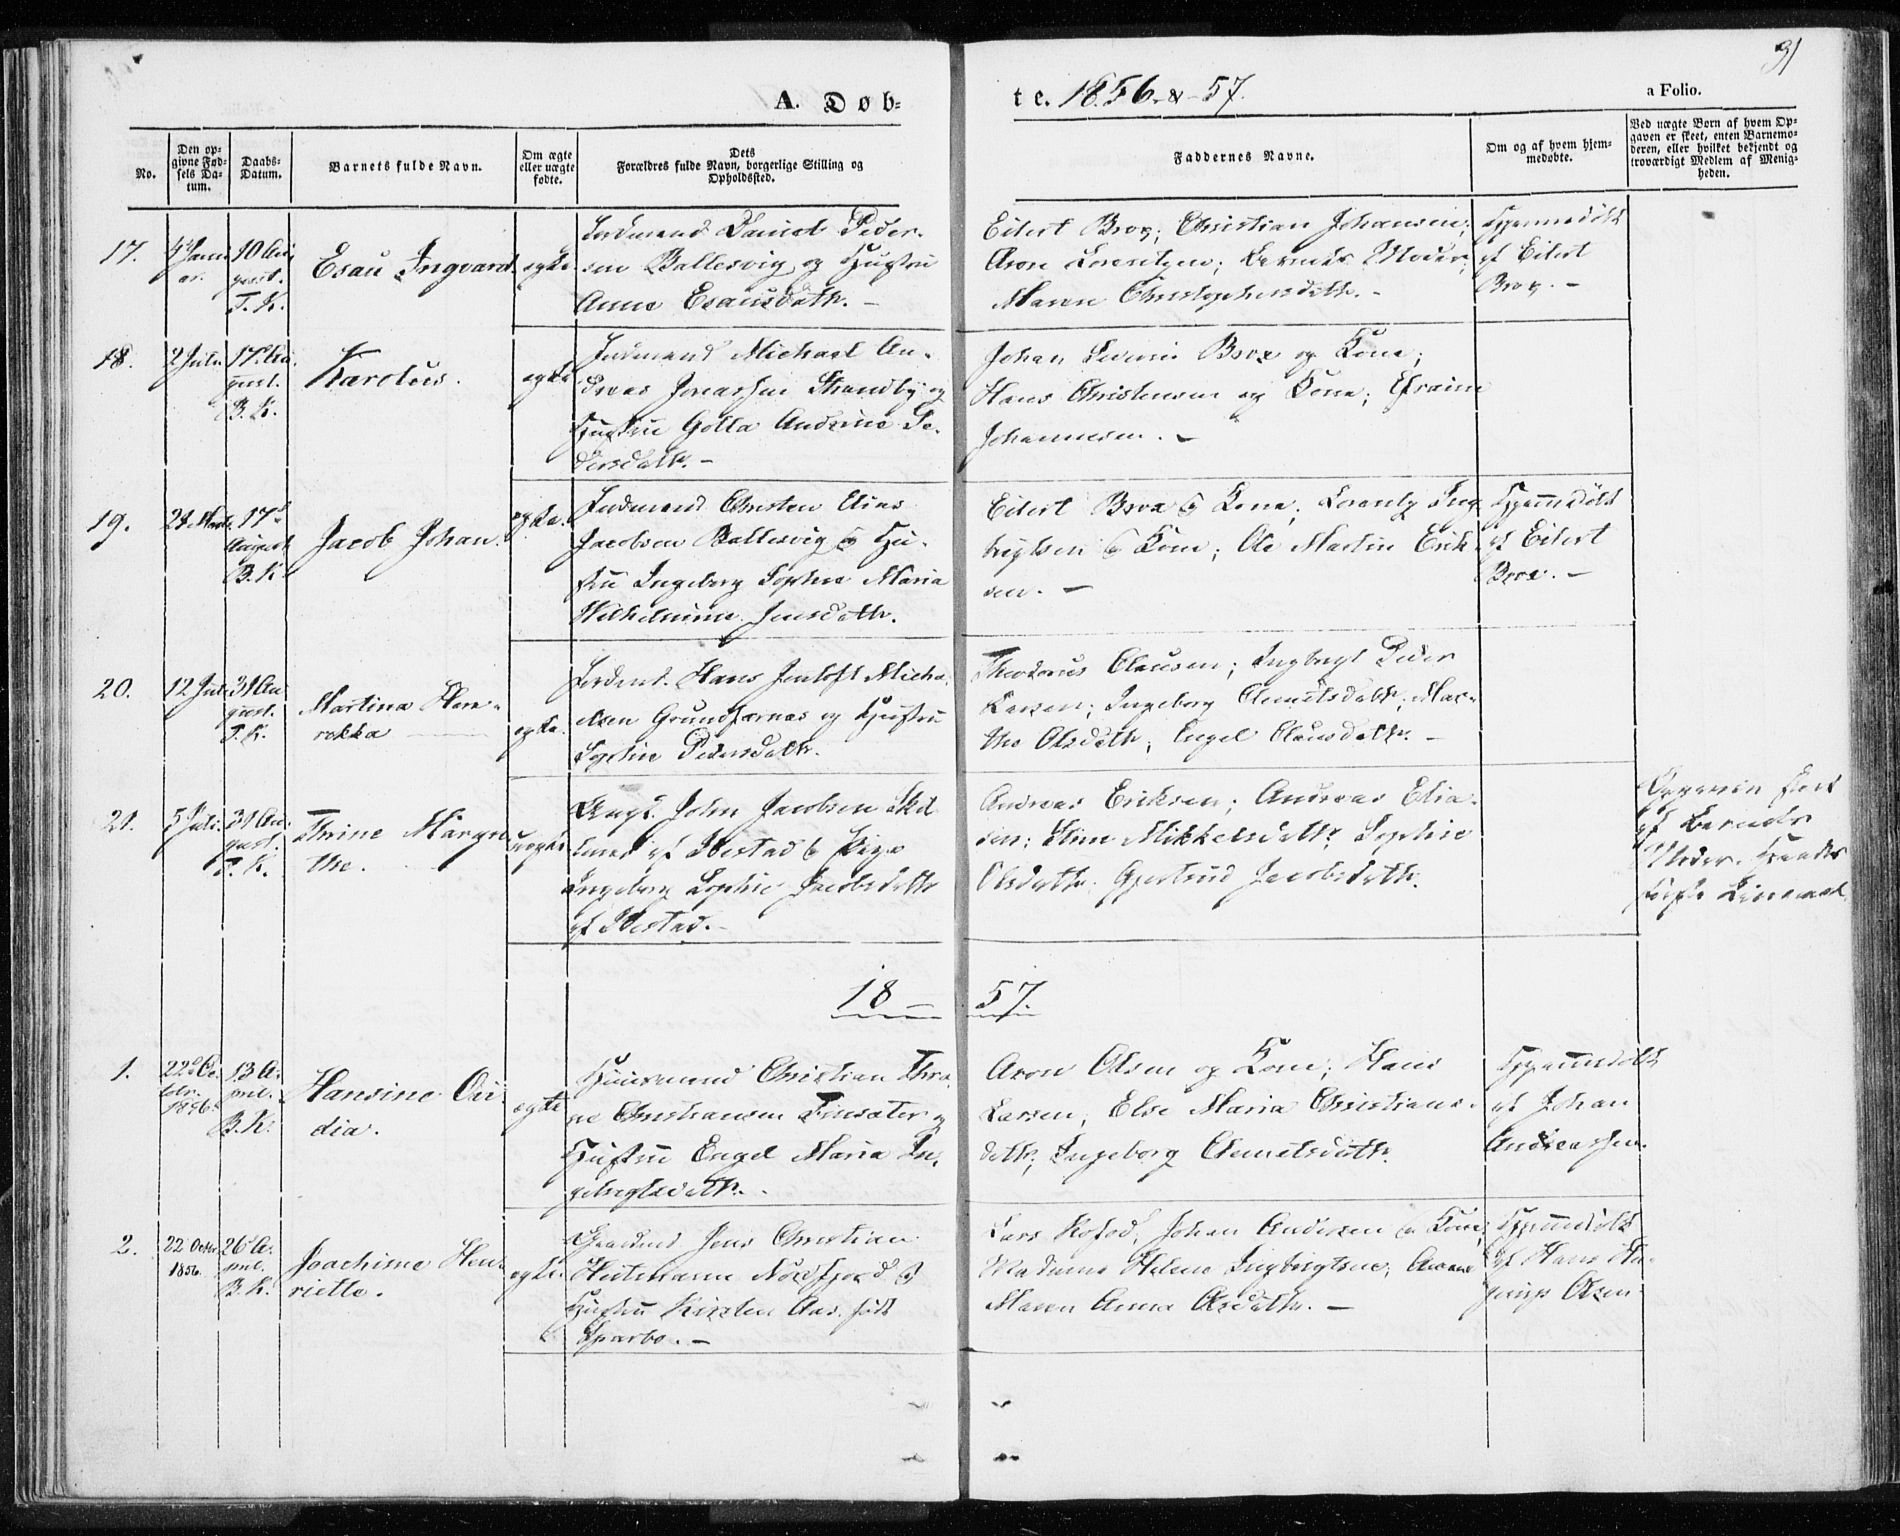 31
A. Døb-
te. 1856 & 57.
a Folio.
No.
Den op-
givne Fød-
sels Da-
tum.
Daabs-
Datum.
Barnets fulde Navn.
Om ægte
eller uægte
fødte.
Dets
Forældres fulde Navn, borgerlige Stilling og
Opholdssted.
Faddernes Navne.
Om og af hvem hjem-
medøbte.
Ved uægte Børn af hvem Op-
gaven er skeet, enten Barnemo-
deren, eller hvilket bekjendt og
troværdigt Medlem af Menig-
heden.
17.
4 Janu
ar.
10 Au
gust.
T. K.
Esau Ingvard
ægte
Indmand Daniel Peder-
sen Ballesvig og Hustru
Anna Esausdatr. -
Eilert Brox; Christian Johansen;
Aron Lorentzen; Barnets Moder;
Maren Christophersdatr. -
Hjemmedøbt
af Eilert
Brox. -
18.
2 Juli
17. Au
gust.
B. K.
Karolus.
ægte
Indmand Michael An-
dreas Jonassen Strandby og
Hustru Golla Andrine Pe-
dersdatr. -
Johan Severin Brox og Kone;
Hans Christensen og Kone; Efraim
Johannesen. -
19.
24 Marts
17d
August
B. K
Jacob Johan.
ægte.
Indmand Christen Elias
Jacobsen Ballesvig & Hu-
stru Ingeborg Sophie Maria
Wilhelmine Jensdatr.
Eilert Brox & Kone; Lorentz Ing-
brigtsen & Kone; Ole Martin Erik
sen. -
Hjemmedøbt
af Eilert
Brox. -
20.
12 Juli
31 Au
gust.
T. K.
Martina Hen-
rikka
ægte.
Indmd. Hans Jentoft Micha-
elsen Grundfarnes og Hustru
Sophie Pedersdatr.
Theodorus Clausen; Ingbrigt Peder
Larsen; Ingeborg Clemetsdatr; Mar-
the Olsdatr; Engel Clausdatr. -
21.
5 Juli.
31 Au-
gust.
T. K.
Thrine Margre
the.
uægte
Ungk. John Jacobsen
af Ibestad & Pige
Ingeborg Sophie Jacobsdatr
af Ibestad. -
Andreas Eriksen; Andreas Elia-
sen; Stine Mikkelsdatr; Sophie
Olsdatr; Gjertrud Jacobsdatr.
Opgaven skeet
af Barnets
Moder.
18 - 57.
1.
22de Oc
tobr.
1856.
13 A-
pril.
B. K.
Hansine Ovi
dia.
ægte
Huusmand Christian Thra
ne Christiansen Finsæter og
Hustru Engel Maria In-
gebrigtsdatr. -
Aron Olsen og Kone; Hans
Larsen; Else Maria Christians-
datr; Ingeborg Clemetsdatr.
Hjemmedøbt
af Johan
Andreassen.
2.
22 Octbr
1856.
26 A-
pril.
B. K.
Joachime Hen
riette.
ægte.
Gaardmd Jens Christian
Heitmann Nordfjord &
Hustru Kirsten Aas, født
Sparbo. -
Lars Kofod; Johan Andersen & Kone;
Madame Helene Ingbrigtsen;
Maren Anna Olsdatr. -
Hjemmedøbt
af Hans
Olsen.